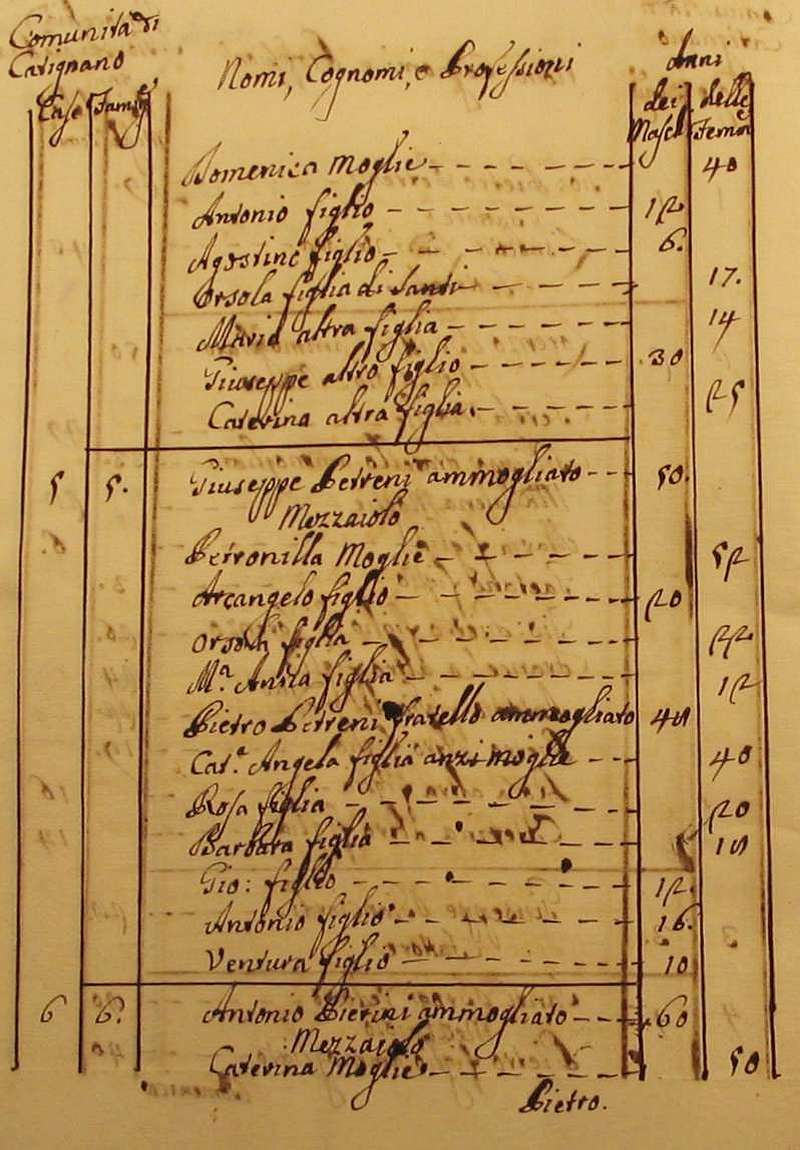 Comunità di
Catignano
Nomi, Cognomi, e Professioni
Anni
Case Famig.e
dei delle
Masch Femm
Domenica Moglie 40
Antonio figlio 12
Agostino figlio 6.
Orsola figlia di Santi 17.
Maria altra figlia 14
Giuseppe altro figlio 30
Caterina altra figlia 25
5 5. Giuseppe Petreni ammogliato 50.
Mezzaiolo
Petronilla Moglie 52
Arcangelo figlio 20
Orsola figlia 22.
M.a Anna figlia 12
Pietro Petreni fratello ammogliato
Cat.a Angela figlia anzi moglie 40
Rosa figlia 20
Barbara figlia
Gio: figlio 12.
Antonio figlio 16.
Ventura figlio 10
6 6. Antonio Pierini ammogliato 60
Mezzaiolo
Caterina Moglie 50
Pietro.